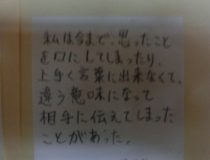 私は今まで、思ったこと
を口にしてしまったり、
上手く言葉に出来なくて、
違う意味になって
相手に伝えてしまった
ことがあった。